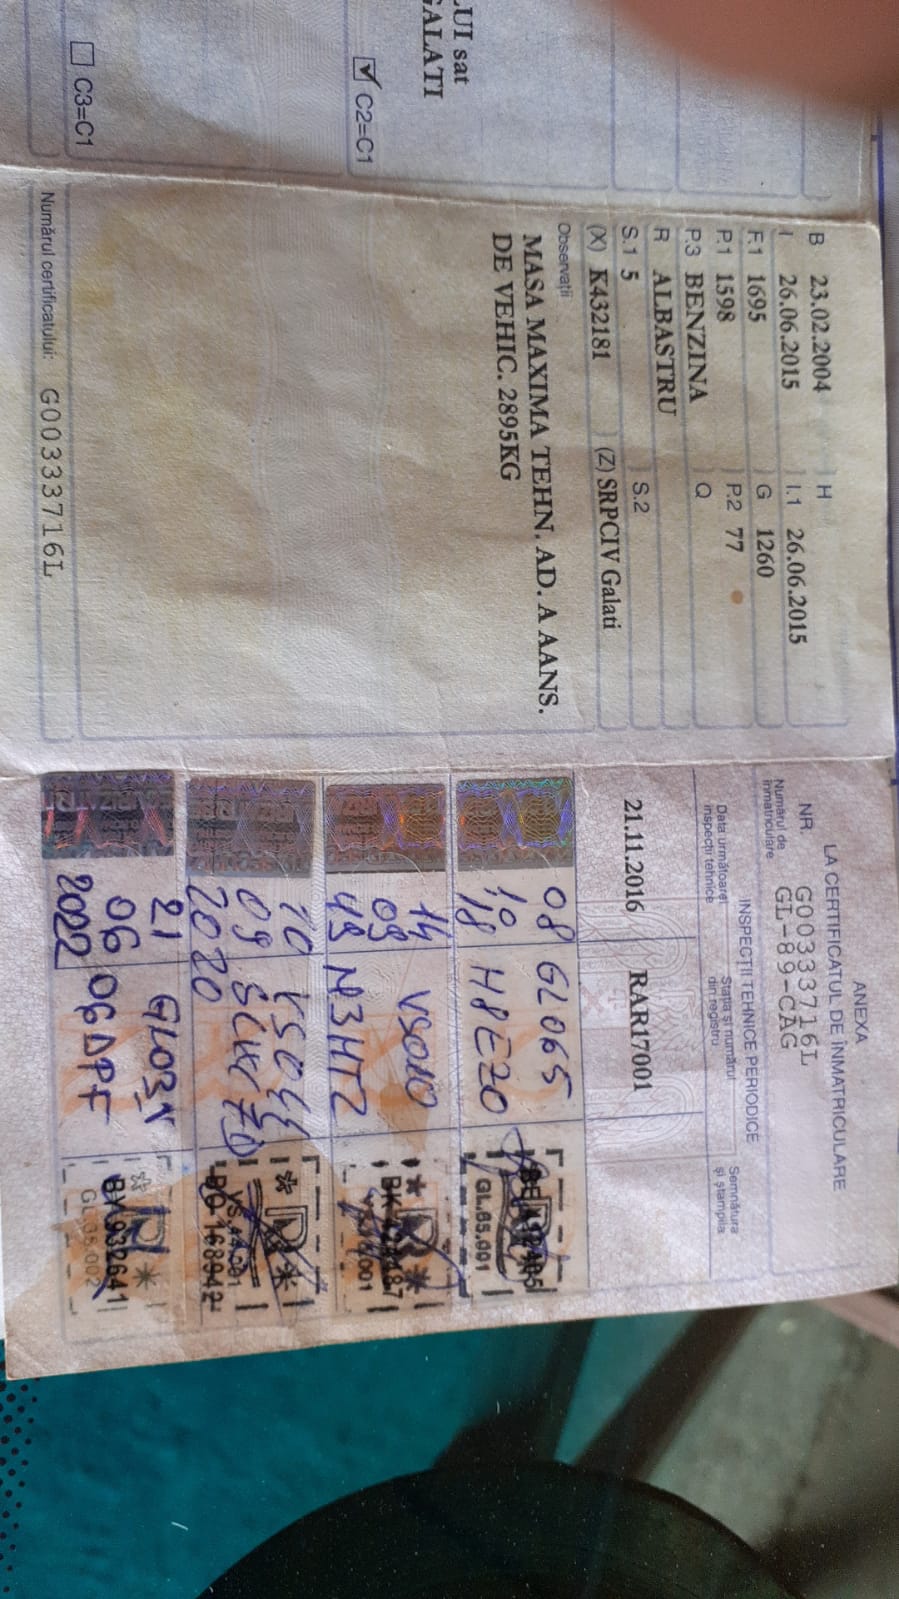 LUI sat
GALATI
C2=C1
C3=C1
B 23.02.2004 H
I 26.06.2015 I.1 26.06.2015
F.1 1695 G 1260
P.1 1598 P.2 77
P.3 BENZINA Q
R ALBASTRU
S.1 5 S.2
(X) K432181 (Z) SRPCIV Galati
Observații
MASA MAXIMA TEHN. AD. A AANS.
DE VEHIC. 2895KG
Numărul certificatului: G00333716L
ANEXA
LA CERTIFICATUL DE ÎNMATRICULARE
NR. G00333716L
Numărul de înmatriculare GL-89-CAG
INSPECȚII TEHNICE PERIODICE
Data următoarei inspecții tehnice
Stația și numărul din registru
Semnătura și ștampila
21.11.2016 RAR17001
08 GL065
10
18 H8EZO
GL.65.001
14 VS010
09
19 N3HTZ
10
09
2020
VS.44.001
BO 168942
21 GL03
06 06DPF
2022
BY 932641